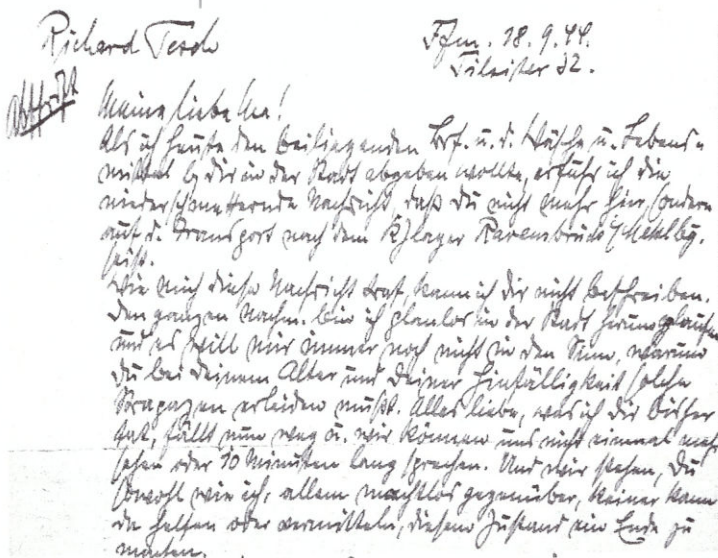 Richard Tesch
Ffm. 18.9.44.
Tilsiter 32.
Abschrift
Meine liebe Ma!
Als ich heute den beiliegenden Brf. u. d. Wäsche u. Lebens=
mittel b. dir in der Stadt abgeben wollte, erfuhr ich die
niederschmetternde Nachricht, daß Du nicht mehr hier, sondern
auf d. Transport nach dem Kzlager Ravensbrück/Meklbg.
seist.
Wie mich diese Nachricht traf, kann ich dir nicht beschreiben.
Den ganzen Nachm. bin ich planlos in der Stadt herumgelaufen
und es will mir immer noch nicht in den Sinn, warum
Du bei Deinem Alter und Deiner Hinfälligkeit solche
Strapazen erleiden mußt. Alles liebe, was ich dir bisher
tat, fällt nun weg u. wir können uns nicht einmal mehr
sehen oder 10 Minuten lang sprechen. Und wir stehen, Du
sowohl wie ich, allem machtlos gegenüber, keiner kann
da helfen oder vermitteln, diesem Zustand ein Ende zu
machen.